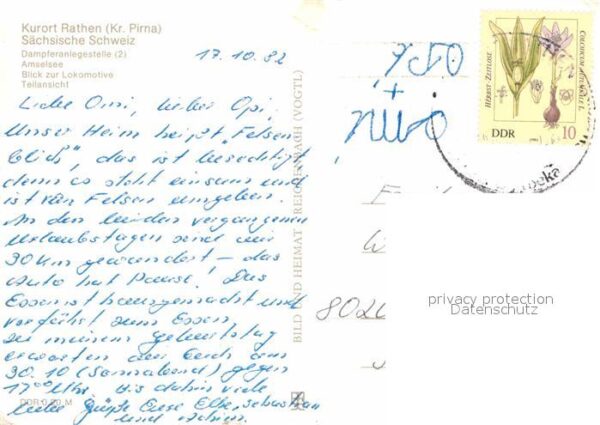 Kurort Rathen (Kr. Pirna)
Sächsische Schweiz
Dampferanlegestelle (2)
Amselsee
Blick zur Lokomotive
Teilansicht
17.10.82
Liebe Omi, lieber Opi,
Unser Heim heißt "Felsen
blick", das ist berechtigt
denn es steht einsam und
ist von Felsen umgeben.
An den beiden vergangenen
Urlaubstagen sind wir
30 km gewandert - das
Auto hat Pause! Das
Essen ist hausgemacht und
verführt zum Essen.
Zu meinem Geburtstag
erwarten wir Euch am
30.10 (Sonnabend) gegen
17⁰⁰ Uhr. Bis dahin viele
liebe Grüße Eure Elke, Sebastian
und
DDR 0,20 M
BILD UND HEIMAT REICHENBACH (VOGTL)
950
+
HERBST-ZEITLOSE
COLCHICUM AUTUMNALE L.
DDR
10
802
privacy protection
Datenschutz